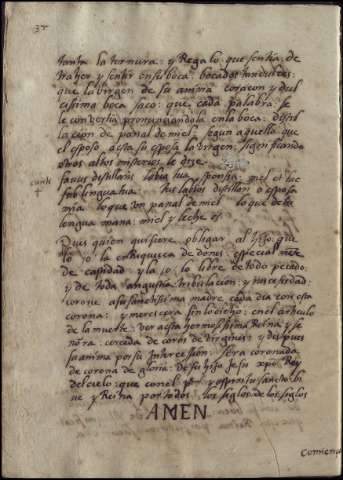 37
tanta la ternura: y Regalo, que sentia, de
traher y sentir en su boca: bocados tan dulces:
que la Virgen de su anima coraçon y dul
cissima boca saco: que cada palabra se
le convertia pronunciandola en la boca: distil
lacion de panal de miel, segun aquello que
el esposo a esta su esposa la Virgen: significando
otros altos misterios le dize
favus distillans labia tua sponsa: mel et lac
cantic 4
sub lingua tua. Tus labios distillan o esposa
mia lo que un panal de miel lo que de la
lengua mana: miel y leche es
Pues quien quisiere obligar al hijo: que
lo enRiquesca de dones: especial mēte
de castidad y la , lo libre de todo pecado:
y de toda angustia, tribulacion: y necesidad:
corone a su sanctissima madre, cada dia con esta
corona: y merecera sin los ojos: en el articulo
de la muerte: ver a esta hermosissima Reina y se
ñora: cercada de coros de Virgines: y despues
su anima por su intercession: sera coronada
de corona de gloria: De su hijo Jesu xpo Rey
del cielo: que con el pe y espiritu sancto, bi
ue y Reina por todos los siglos de los siglos
AMEN
Comiença